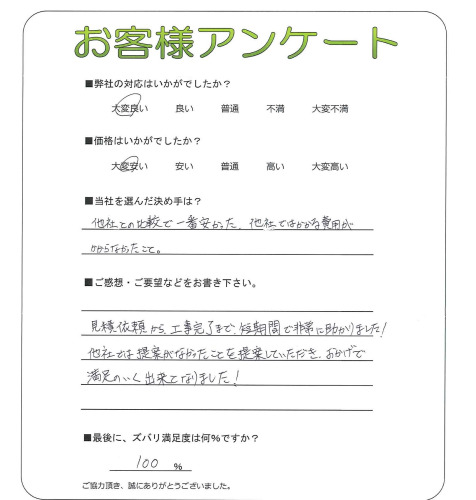 お客様アンケート
■弊社の対応はいかがでしたか？
大変良い 良い 普通 不満 大変不満
■価格はいかがでしたか？
大変安い 安い 普通 高い 大変高い
■当社を選んだ決め手は？
他社との比較で一番安かった。他社ではかかる費用が
かからなかったこと。
■ご感想・ご要望などをお書き下さい。
見積依頼から、工事完了まで、短期間で非常に助かりました！
他社では提案がなかったことを提案していただき、おかげで
満足のいく出来となりました！
■最後に、ズバリ満足度は何％ですか？
100 ％
ご協力頂き、誠にありがとうございました。